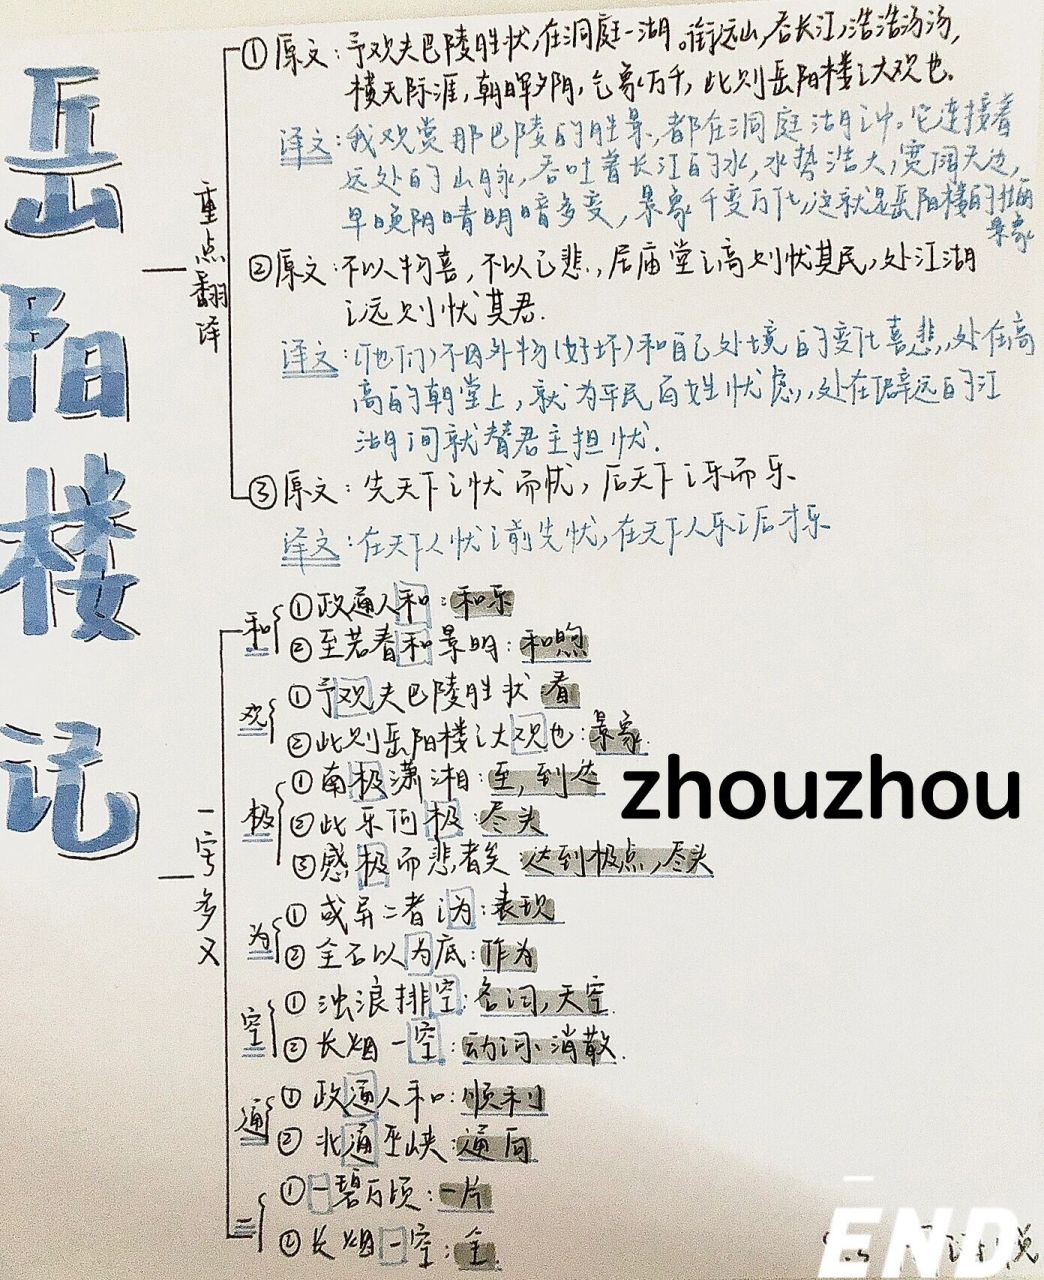 岳阳楼记
重点翻译
①原文：予观夫巴陵胜状，在洞庭一湖。衔远山，吞长江，浩浩汤汤，
横无际涯，朝晖夕阴，气象万千，此则岳阳楼之大观也。
译文：我观赏那巴陵的胜景，都在洞庭湖之中。它连接着
远处的山脉，吞吐着长江的水，水势浩大，宽阔无边，
早晚阴晴明暗多变，景象千变万化，这就是岳阳楼的壮丽
景象
②原文：不以物喜，不以己悲，居庙堂之高则忧其民，处江湖
之远则忧其君.
译文：(他们)不因外物(好坏)和自己处境的变化喜悲，处在高
高的朝堂上，就为平民百姓忧虑，处在僻远的江
湖间就替君主担忧.
③原文：先天下之忧而忧，后天下之乐而乐
译文：在天下人忧之前先忧，在天下人乐之后才乐
一字多义
和
①政通人和：和乐
②至若春和景明：和煦
观
①予观夫巴陵胜状 看
②此则岳阳楼之大观也：景象.
极
①南极潇湘：至，到达
②此乐何极：尽头
③感极而悲者矣：达到极点，尽头
zhouzhou
为
①或异二者之为：表现
②全石以为底：作为
空
①浊浪排空：名词，天空.
②长烟一空：动词 消散.
通
①政通人和：顺利
②北通巫峡：通向
一
①一碧万顷：一片
②长烟一空：全.
END